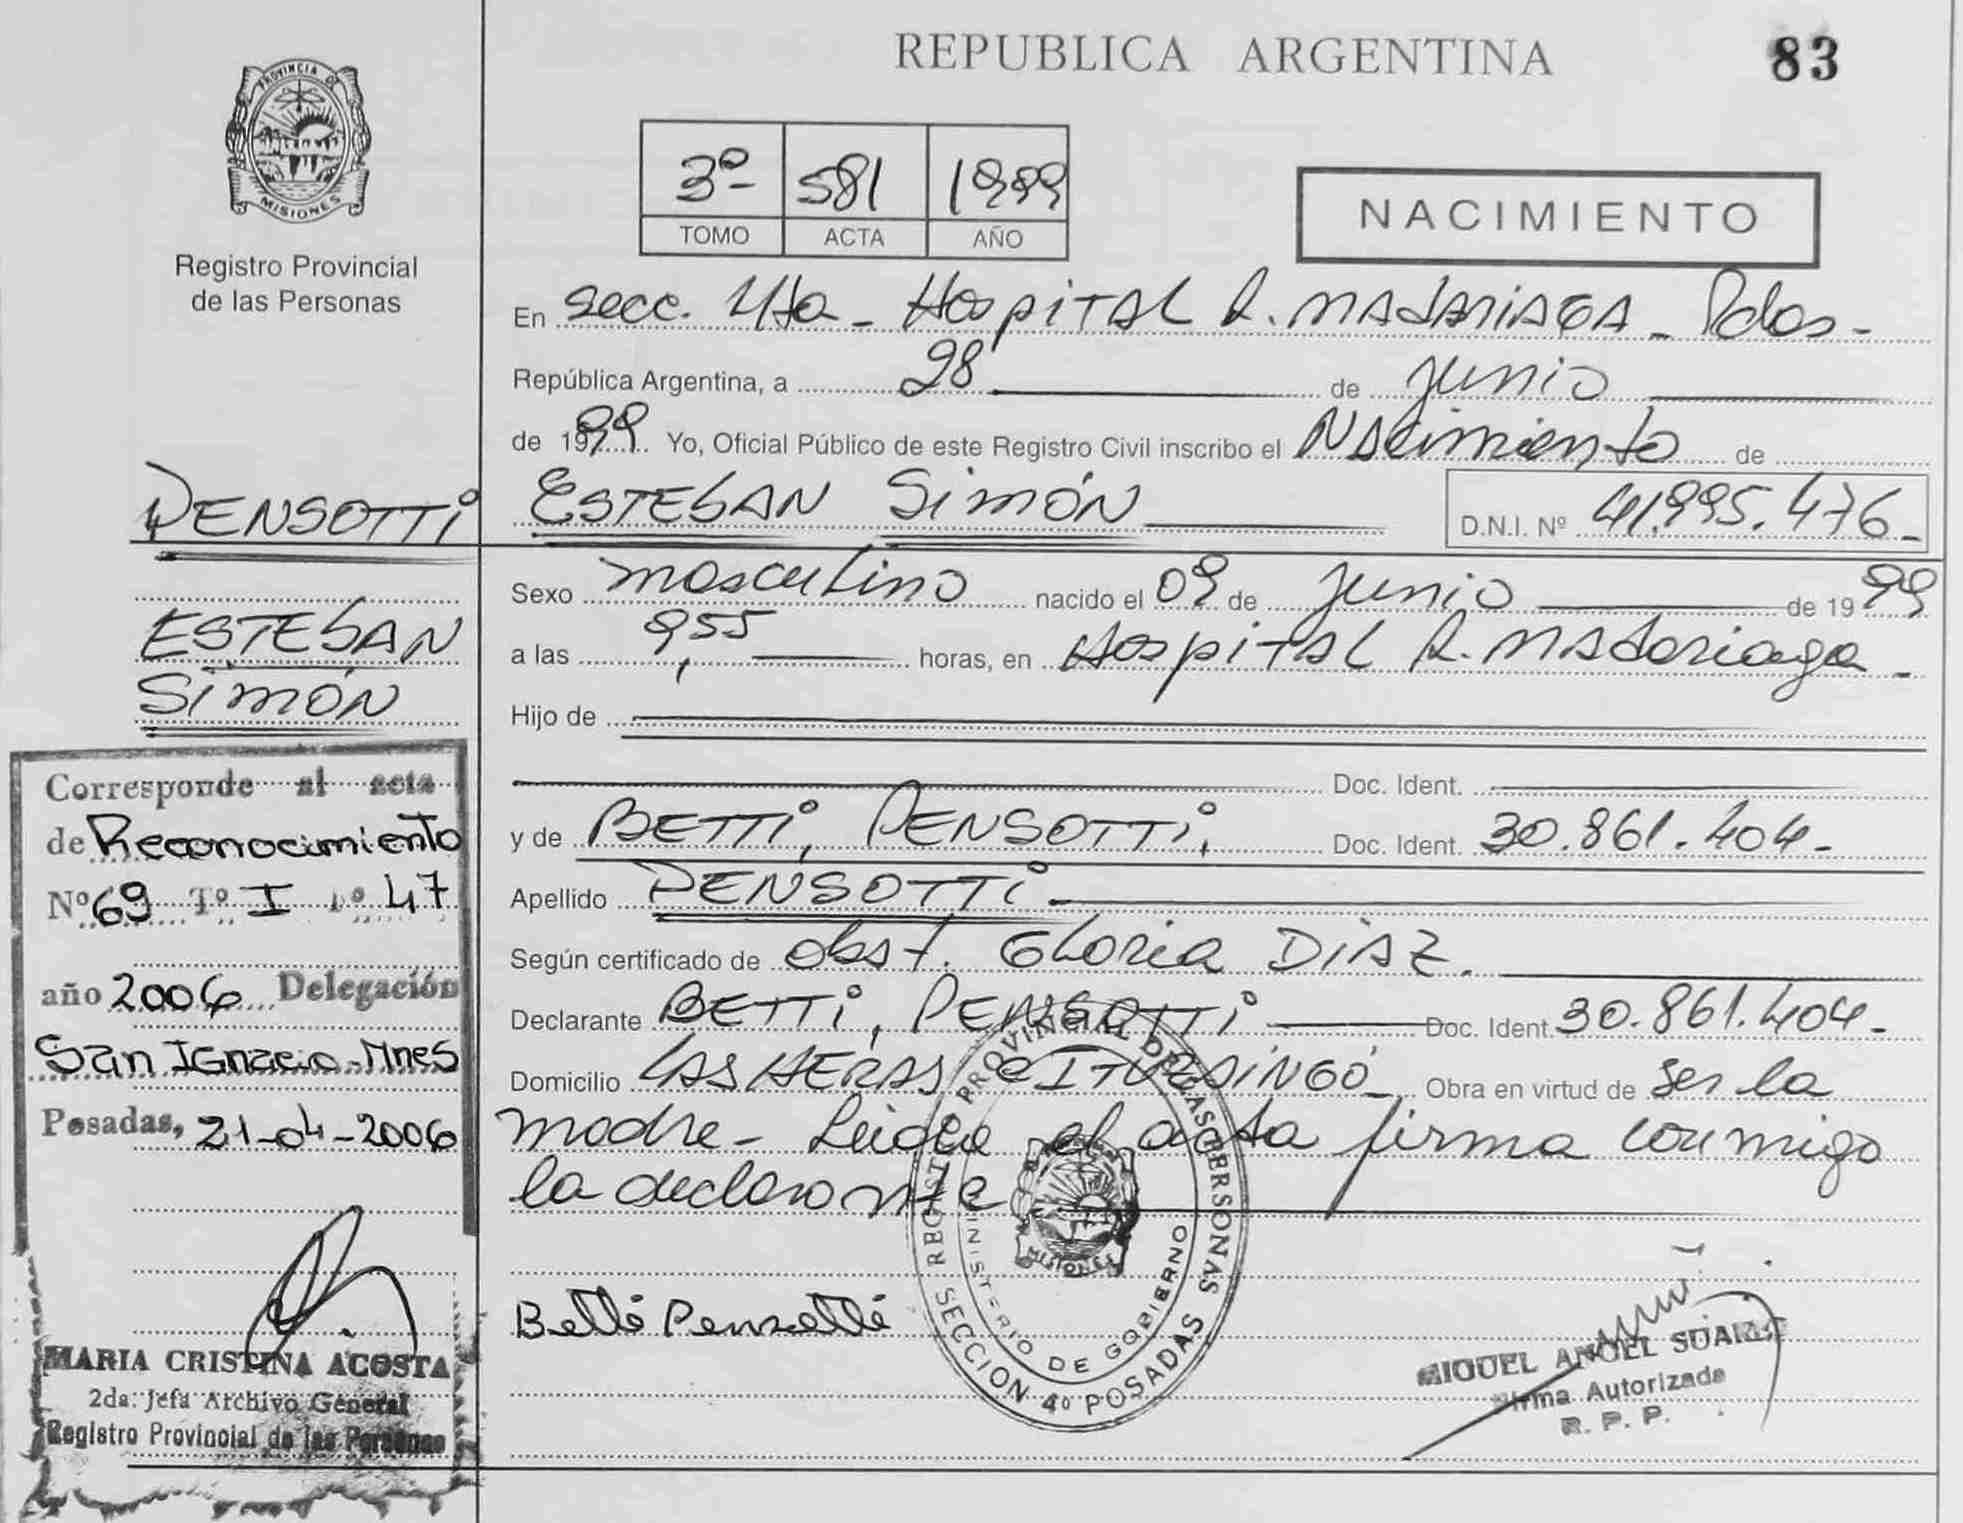 REPUBLICA ARGENTINA
83
PROVINCIA DE
MISIONES
Registro Provincial
de las Personas
3º- 581 1999
TOMO ACTA AÑO
NACIMIENTO
En secc. 4ta - Hospital R. MADARIAGA - Pdas -
República Argentina, a 28 de junio
de 1999 Yo, Oficial Público de este Registro Civil inscribo el Nacimiento de
PENSOTTI ESTEBAN SIMÓN D.N.I. Nº 41.995.476-
ESTEBAN
SIMÓN
Sexo masculino nacido el 09 de junio de 1999
a las 9,55 horas, en Hospital R. Madariaga -
Hijo de
Doc. Ident.
y de BETTI, PENSOTTI, Doc. Ident. 30.861.404-
Apellido PENSOTTI
Según certificado de obst. GLORIA DIAZ.
Declarante BETTI, PENSOTTI Doc. Ident. 30.861.404-
Domicilio LAS HERAS e ITUZAINGÓ - Obra en virtud de ser la
madre - Leída el acta firma conmigo
la declarante
Corresponde al acta
de Reconocimiento
Nº 69 Tº I Fº 47
año 2006 Delegación
San Ignacio - Mnes
Posadas, 21-04-2006
MARIA CRISTINA ACOSTA
2da. Jefa Archivo General
Registro Provincial de las Personas
Betti Pensotti
REGISTRO PROVINCIAL DE LAS PERSONAS
MINISTERIO DE GOBIERNO
MISIONES
SECCION 4º POSADAS
MIGUEL ANGEL SUAREZ
Firma Autorizada
R. P. P.